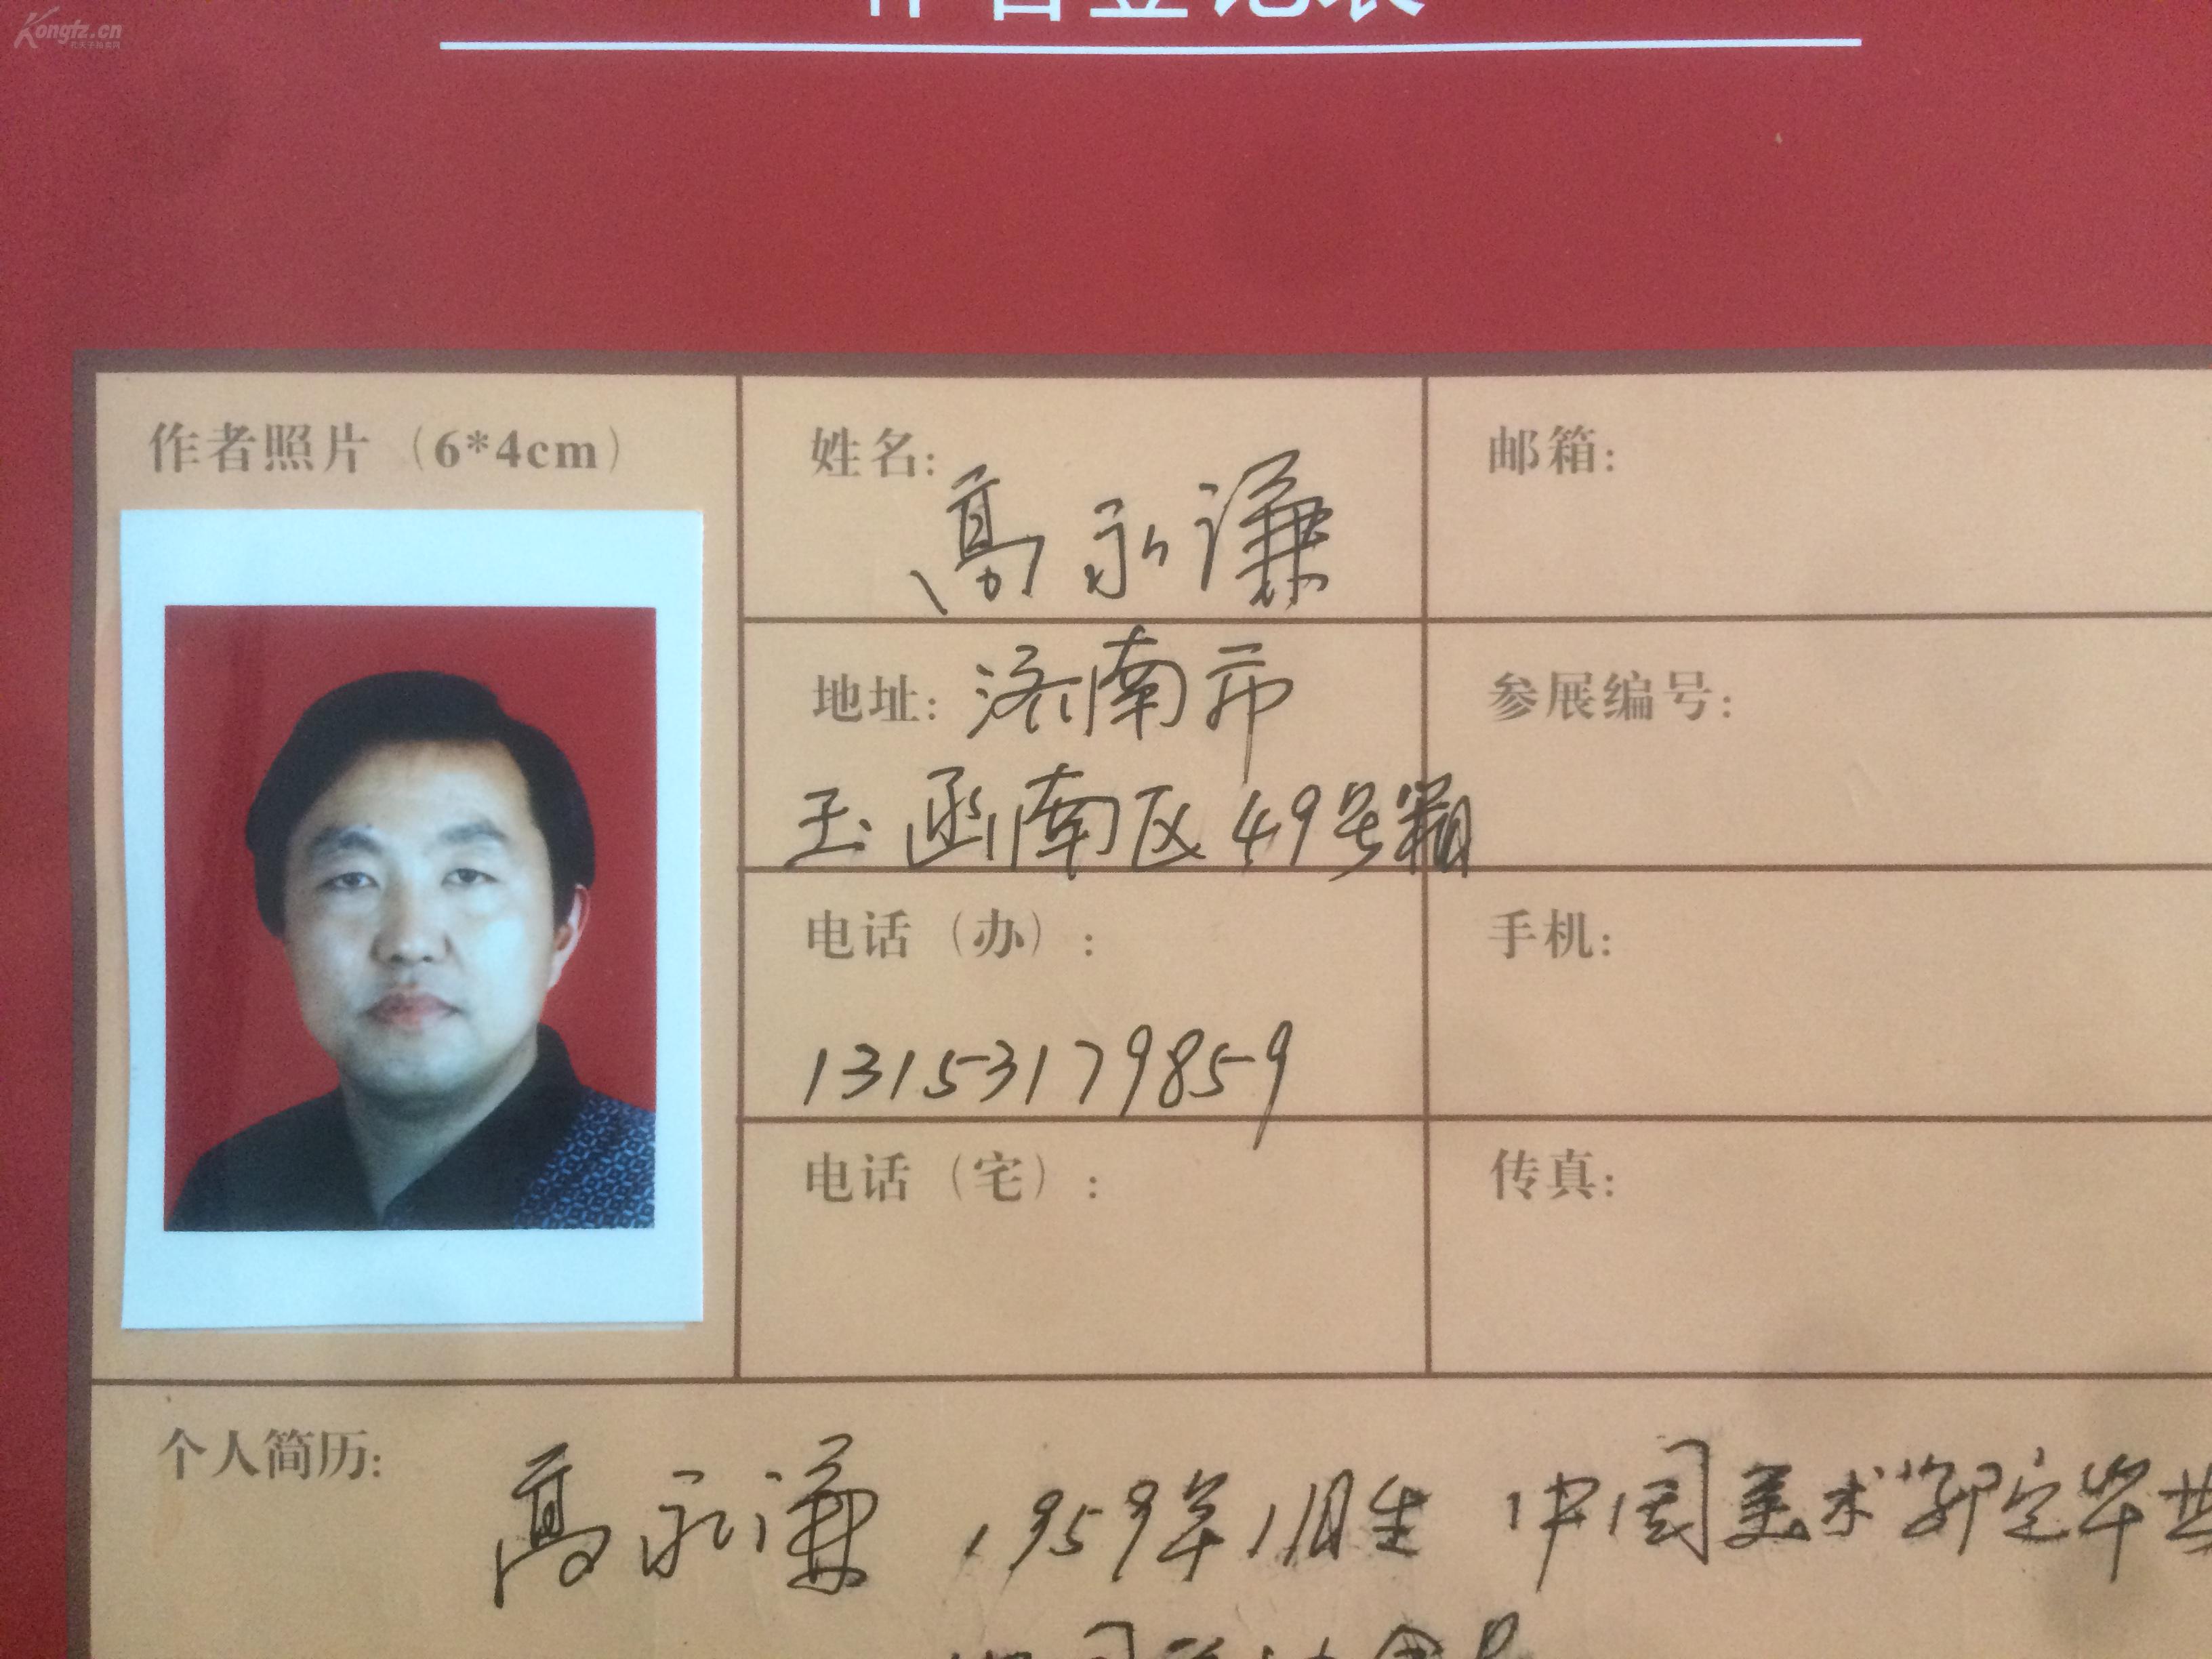 Kongfz.cn
孔夫子旧书网
作者登记表
作者照片（6*4cm）
姓名：高永谦
邮箱：
地址：济南市
玉函南区49号楼
参展编号：
电话（办）：
13153179859
手机：
电话（宅）：
传真：
个人简历：
高永谦 1959年11月生 中国美术学院毕业